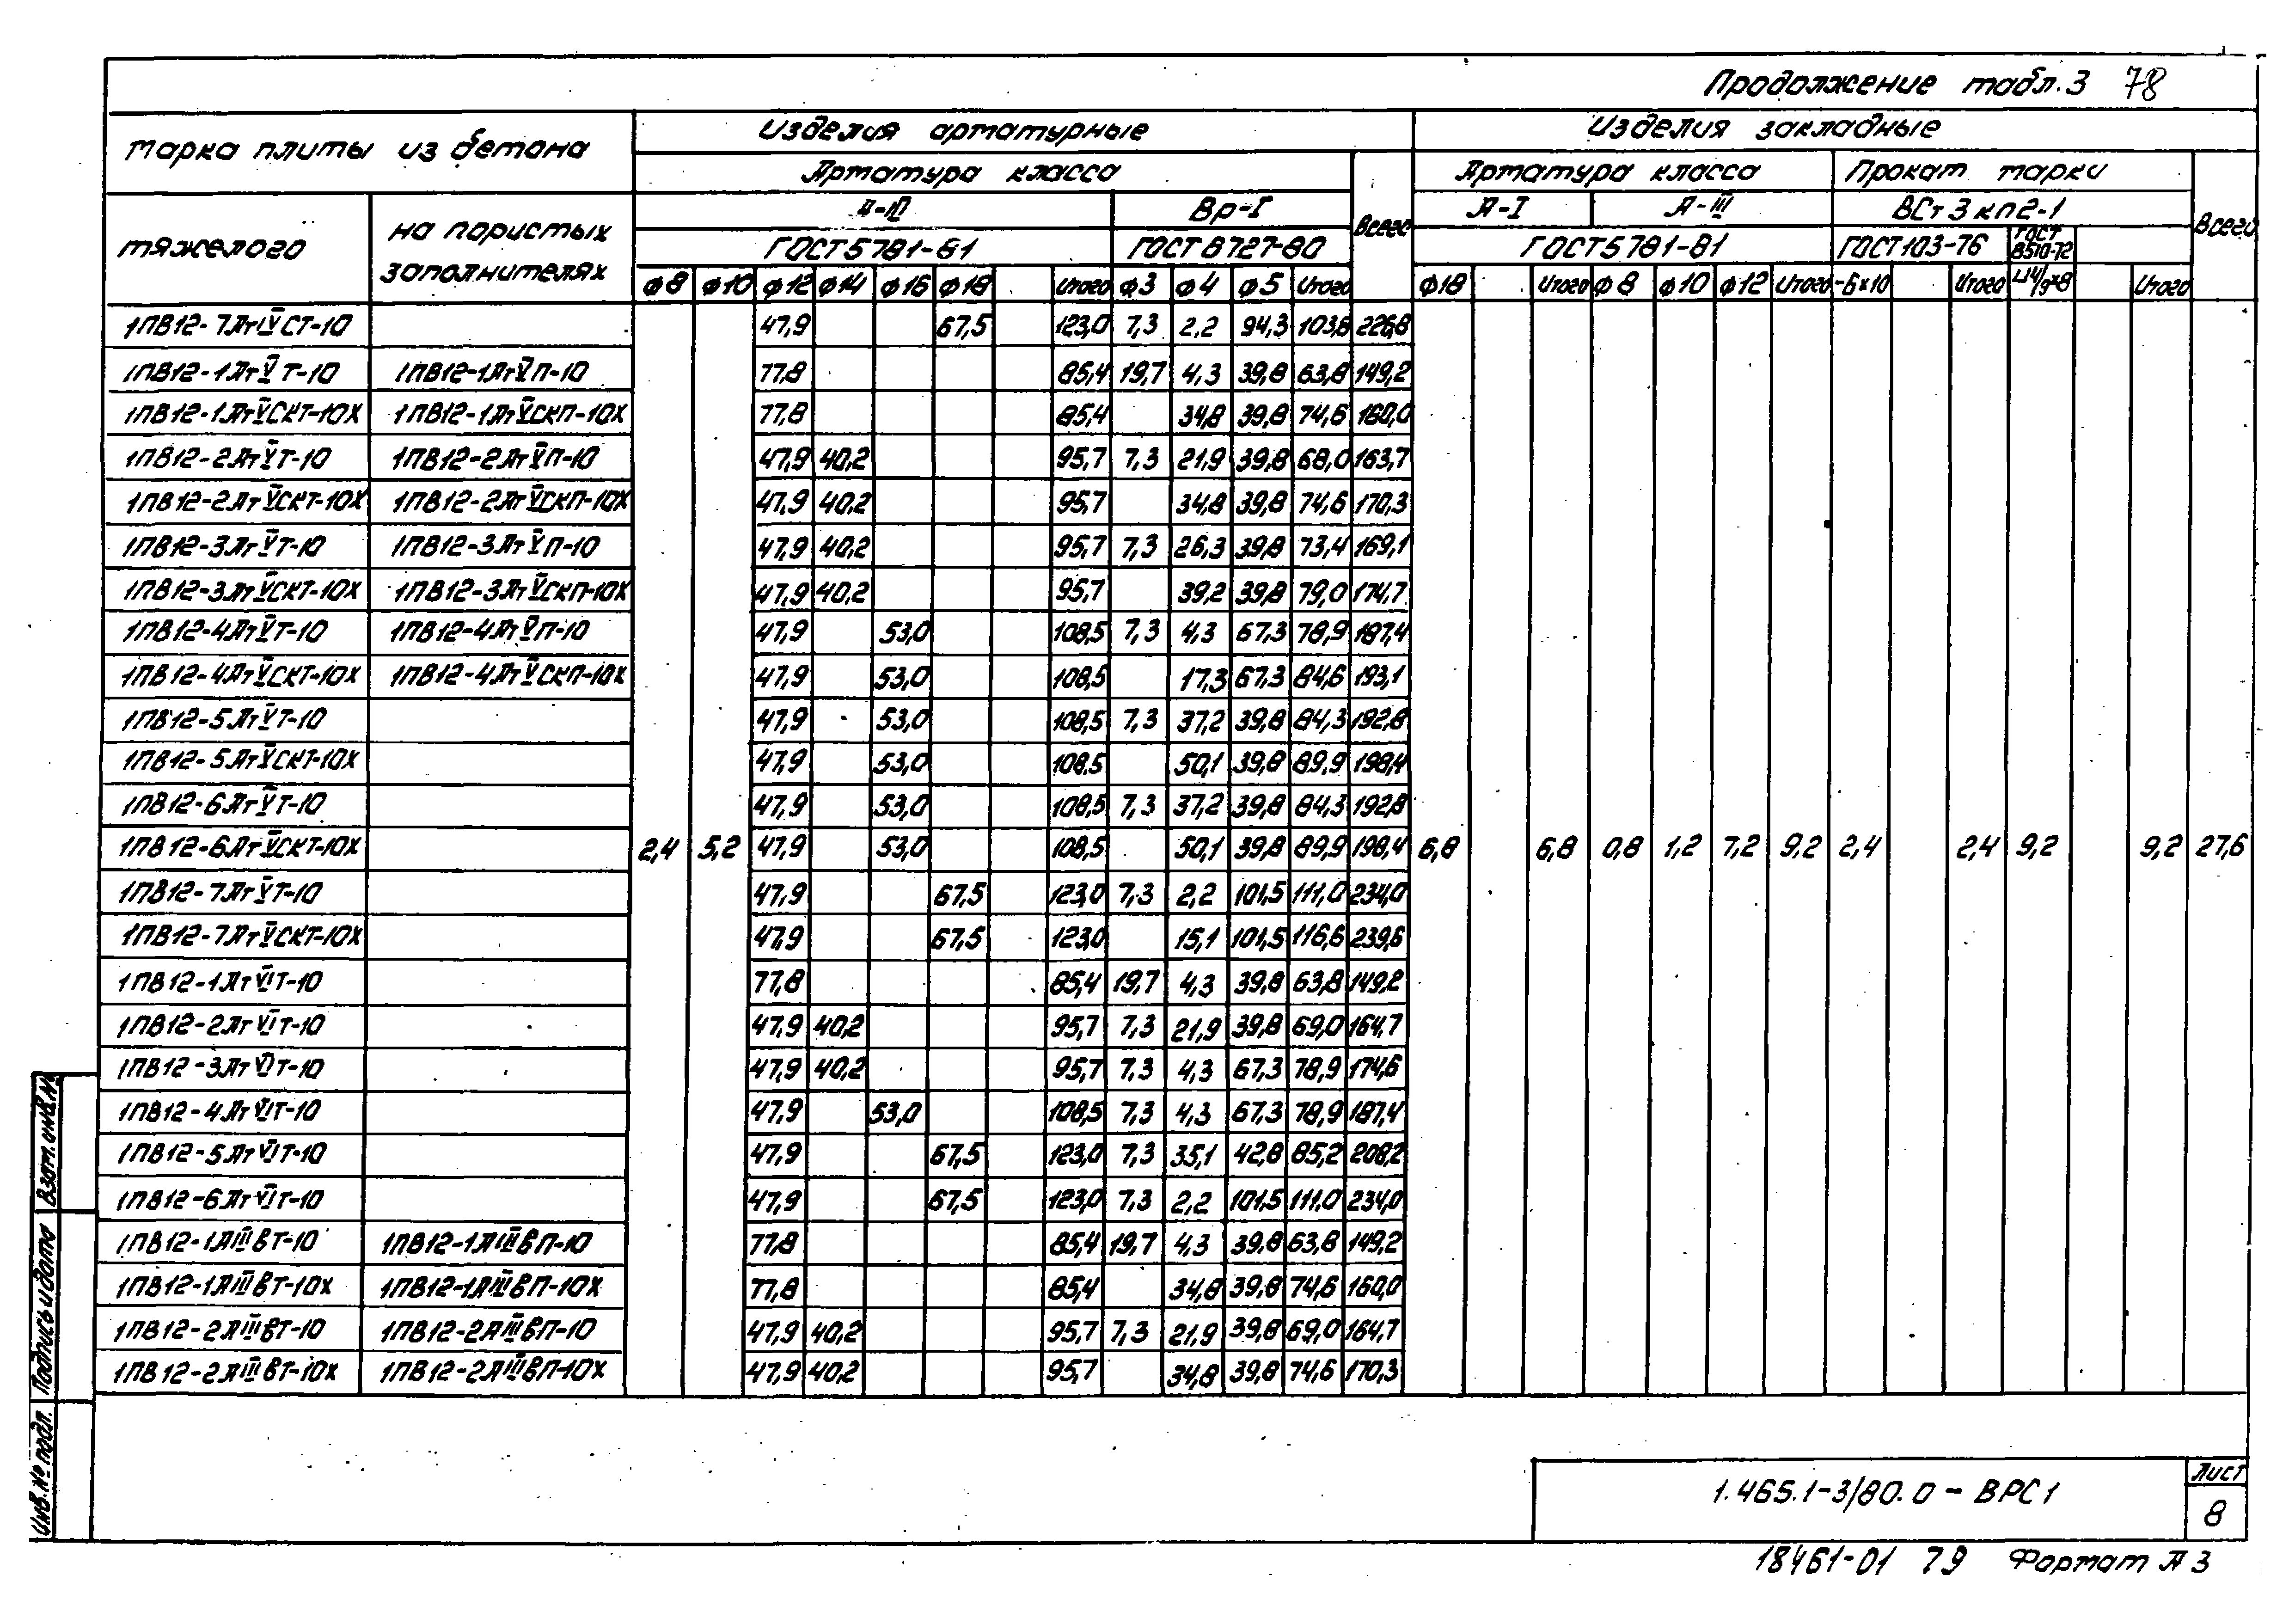 Продолжение табл.3 78
Марка плиты из бетона
Изделия арматурные
Изделия закладные
Арматура класса
Всего
Арматура класса
Прокат марки
Всего
тяжелого
на пористых заполнителях
Вр-I
А-I
А-III
ВСт3кп2-1
ГОСТ 6727-80
ГОСТ 5781-81
ГОСТ 103-76
ГОСТ 8510-72
ф8 ф10 ф12 ф14 ф16 ф18 Итого ф3 ф4 ф5 Итого ф18 Итого ф8 ф10 ф12 Итого -6×10 Итого Итого
1ПВ12-7АтIVСТ-10 47,9 67,5 123,0 7,3 2,2 94,3 103,8 226,8
1ПВ12-1АтVТ-10 1ПВ12-1АтVП-10 77,8 85,4 19,7 4,3 39,8 63,8 149,2
1ПВ12-1АтVСКТ-10Х 1ПВ12-1АтVСКП-10Х 77,8 85,4 34,8 39,8 74,6 160,0
1ПВ12-2АтVТ-10 1ПВ12-2АтVП-10 47,9 40,2 95,7 7,3 21,9 39,8 68,0 163,7
1ПВ12-2АтVСКТ-10Х 1ПВ12-2АтVСКП-10Х 47,9 40,2 95,7 34,8 39,8 74,6 170,3
1ПВ12-3АтVТ-10 1ПВ12-3АтVП-10 47,9 40,2 95,7 7,3 26,3 39,8 73,4 169,1
1ПВ12-3АтVСКТ-10Х 1ПВ12-3АтVСКП-10Х 47,9 40,2 95,7 39,2 39,8 79,0 174,7
1ПВ12-4АтVТ-10 1ПВ12-4АтVП-10 47,9 53,0 108,5 7,3 4,3 67,3 78,9 187,4
1ПВ12-4АтVСКТ-10Х 1ПВ12-4АтVСКП-10Х 47,9 53,0 108,5 17,3 67,3 84,6 193,1
1ПВ12-5АтVТ-10 47,9 53,0 108,5 7,3 37,2 39,8 84,3 192,8
1ПВ12-5АтVСКТ-10Х 47,9 53,0 108,5 50,1 39,8 89,9 198,4
1ПВ12-6АтVТ-10 47,9 53,0 108,5 7,3 37,2 39,8 84,3 192,8
1ПВ12-6АтVСКТ-10Х 2,4 5,2 47,9 53,0 108,5 50,1 39,8 89,9 198,4 6,8 6,8 0,8 1,2 7,2 9,2 2,4 2,4 9,2 9,2 27,6
1ПВ12-7АтVТ-10 47,9 67,5 123,0 7,3 2,2 101,5 111,0 234,0
1ПВ12-7АтVСКТ-10Х 47,9 67,5 123,0 15,1 101,5 116,6 239,6
1ПВ12-1АтVIТ-10 77,8 85,4 19,7 4,3 39,8 63,8 149,2
1ПВ12-2АтVIТ-10 47,9 40,2 95,7 7,3 21,9 39,8 69,0 164,7
1ПВ12-3АтVIТ-10 47,9 40,2 95,7 7,3 4,3 67,3 78,9 174,6
1ПВ12-4АтVIТ-10 47,9 53,0 108,5 7,3 4,3 67,3 78,9 187,4
1ПВ12-5АтVIТ-10 47,9 67,5 123,0 7,3 35,1 42,8 85,2 208,2
1ПВ12-6АтVIТ-10 47,9 67,5 123,0 7,3 2,2 101,5 111,0 234,0
1ПВ12-1АIIIвТ-10 1ПВ12-1АIIIвП-10 77,8 85,4 19,7 4,3 39,8 63,8 149,2
1ПВ12-1АIIIвТ-10Х 1ПВ12-1АIIIвП-10Х 77,8 85,4 34,8 39,8 74,6 160,0
1ПВ12-2АIIIвТ-10 1ПВ12-2АIIIвП-10 47,9 40,2 95,7 7,3 21,9 39,8 69,0 164,7
1ПВ12-2АIIIвТ-10Х 1ПВ12-2АIIIвП-10Х 47,9 40,2 95,7 34,8 39,8 74,6 170,3
Взам.инв.№
Подпись и дата
Инв.№ подл.
1.465.1-3/80.0-ВРС1
Лист
8
18461-01 79 Формат А3